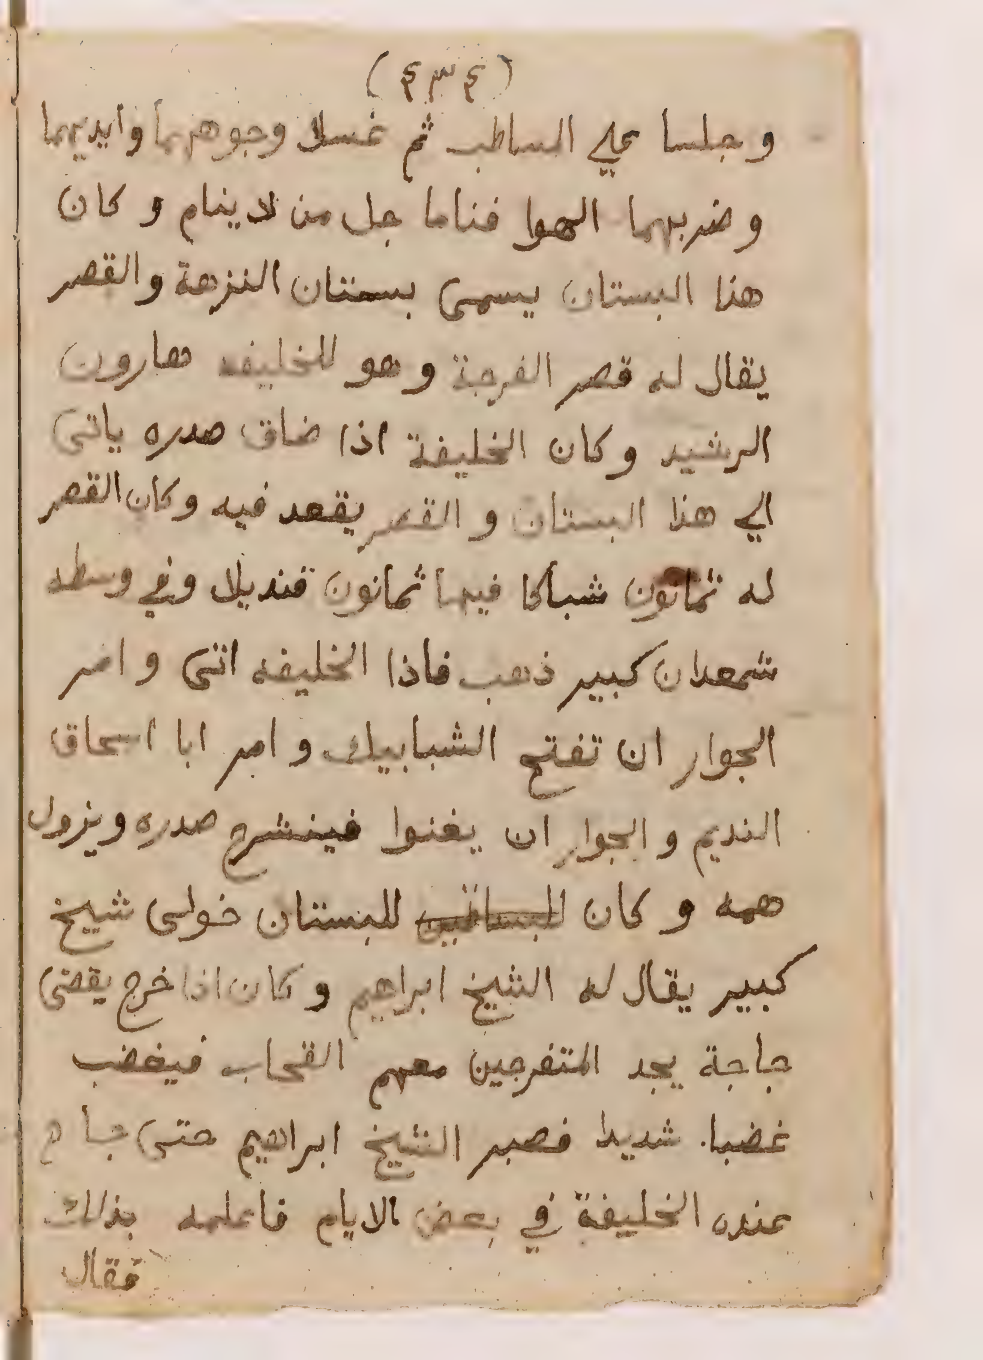 (٤٣٤)
وجلسا علي المساطب ثم غسلا وجوههما وايديهما
وضربهما الهوا فناما جل من لا ينام وكان
هذا البستان يسمى بستان النزهة والقصر
يقال له قصر الفرجة وهو للخليفه هارون
الرشيد وكان الخليفة اذا ضاق صدره ياتى
الي هذا البستان والقصر يقعد فيه وكان القصر
له ثمانون شباكا فيها ثمانون قنديلا وفي وسطه
شمعدان كبير ذهب فاذا الخليفه اتى وامر
الجوار ان تفتح الشبابيك وامر ابا اسحاق
النديم والجوار ان يغنوا فينشرح صدره ويزول
همه وكان للبستان خولى شيخ
كبير يقال له الشيخ ابراهيم وكان اذا خرج يقضى
حاجة يجد المتفرجين معهم القحاب فيغضب
غضبا شديدا فصبر الشيخ ابراهيم حتى جا
عنده الخليفة في بعض الايام فاعلمه بذلك
فقال